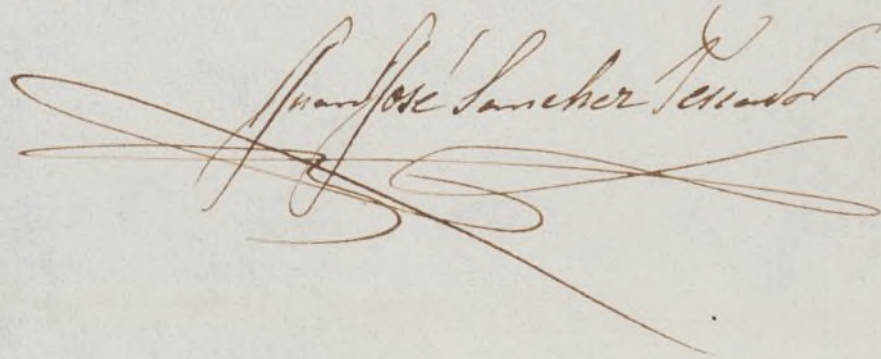 Juan José Sanchez Pescador